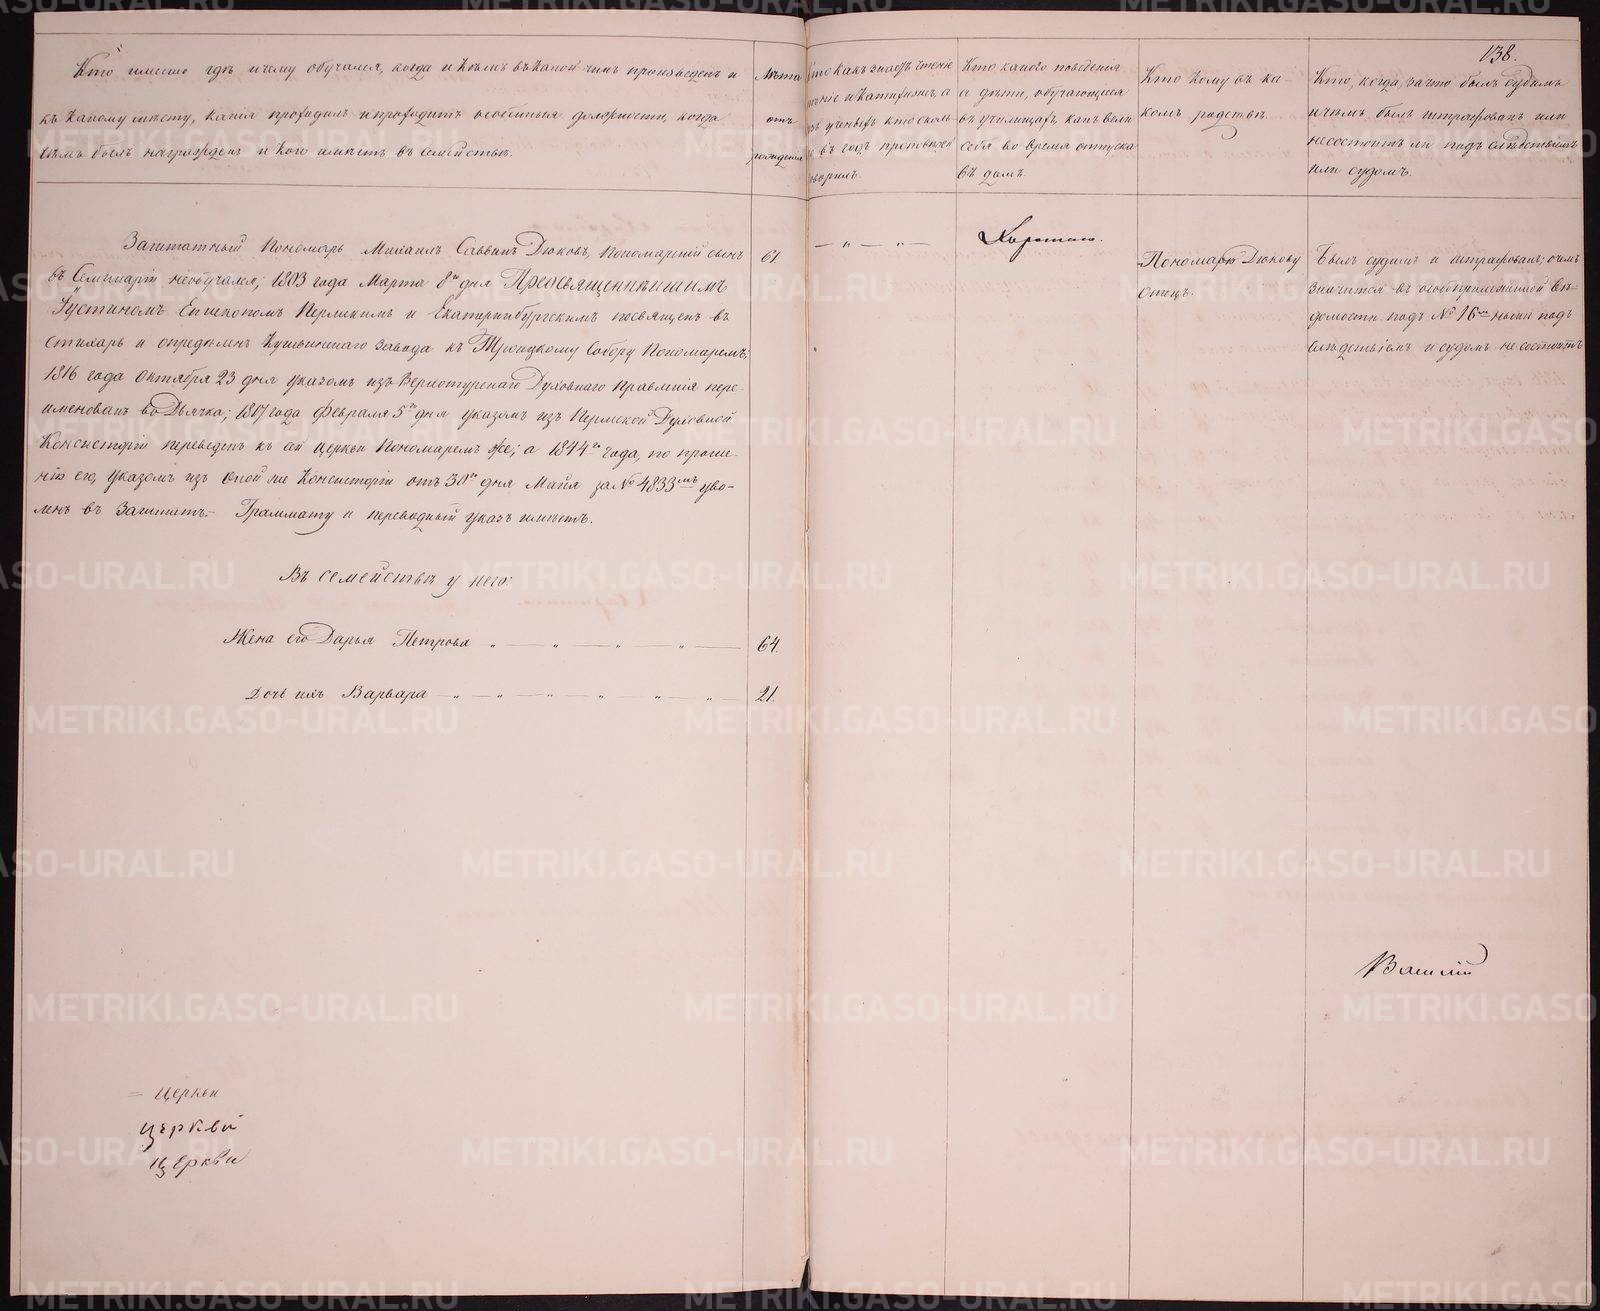 138.
Кто имено гдѣ и чему обучался, когда и кѣмъ въ какой чинъ произведенъ и
къ какому мѣсту, какія проходилъ и проходитъ особенныя должности, когда
чѣмъ былъ награжденъ и кого имѣетъ въ семействѣ.
Лѣта
отъ
рожденія
Кто какъ знаетъ чтеніе
пѣніе и катихизисъ, а
изъ ученыхъ кто сколь-
ко въ годъ проповѣдей
говорилъ.
Кто какого поведенія
а дѣти, обучающіеся
въ училищахъ, какъ вели
себя во время отпуска
въ домъ.
Кто кому въ ка-
комъ родствѣ.
Кто, когда, за что былъ судимъ
и чѣмъ былъ штрафованъ или
несостоитъ ли подъ слѣдствіемъ
или судомъ.
Заштатный Пономарь Михаилъ Саввинъ Дюковъ, Пономарскій сынъ
въ Семинаріи необучался; 1803 года Марта 8го дня Преосвященнѣйшимъ
Іустиномъ Епископомъ Пермскимъ и Екатеринбургскимъ посвященъ въ
стихарь и опредѣленъ Кушвинскаго завода къ Троицкому Собору Пономаремъ;
1816 года Октября 23 дня указомъ изъ Верхотурскаго Духовнаго Правленія пере-
именованъ во Дьячка; 1817 года Февраля 5го дня указомъ изъ Пермской Духовной
Консисторіи переведенъ къ сей церкви Пономаремъ же; а 1844го года, по проше-
нію его, указомъ изъ оной же Консисторіи отъ 30го дня Майя за № 4833мъ уво-
ленъ въ Заштатъ.- Граммату и переводный указъ имѣетъ.
61.
— „ — „ —
Хорошаго.
Пономарю Дюкову
Отецъ.
Былъ судимъ и штрафованъ; о чемъ
значится въ особоприложенной вѣ-
домости подъ № 16мъ нынѣ подъ
Слѣдствіемъ и судомъ не состоитъ
Въ семействѣ у него:
Жена его Дарья Петрова „ — „ — „ — „ — 64.
Дочь ихъ Варвара — „ — „ — „ — „ — „ — „ — 21.
Василій
= церкви
церкви
церкви
METRIKI.GASO-URAL.RU